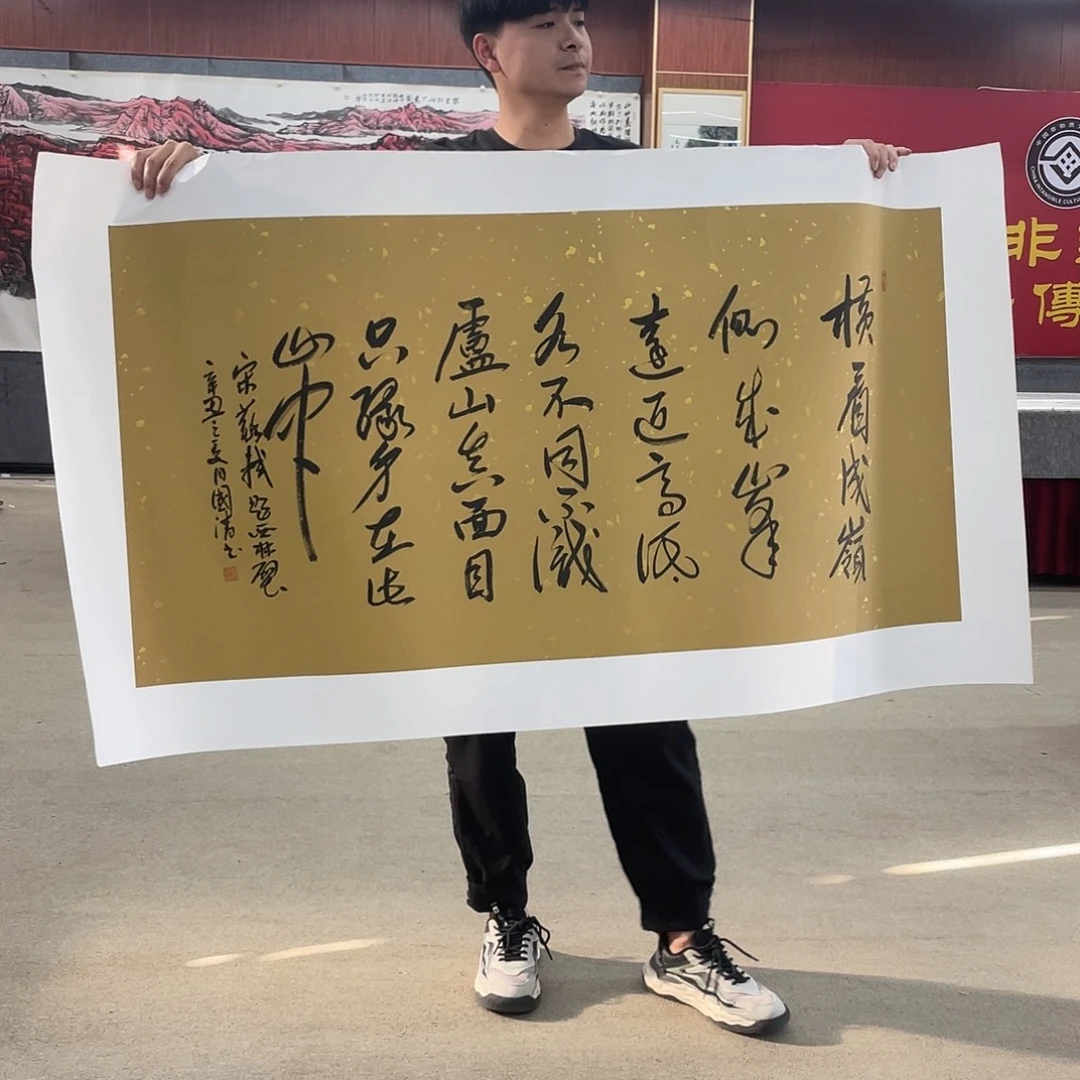 横看成嶺
側成峯
遠近高低
各不同不識
盧山真面目
只緣身在此
山中
宋蘇軾題西林壁
辛丑之夏月國清书
CHINA INTANGIBLE CULTU
非
傳